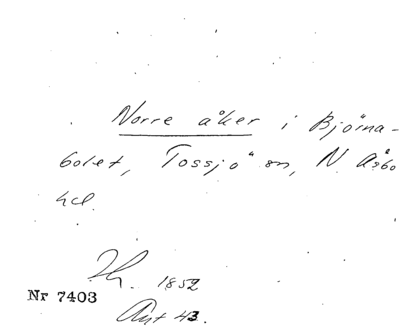 Norre åker i Björna-
bolet, Tossjö sn, N Åsbo
hd.
1852
Nr 7403
Avt 43.